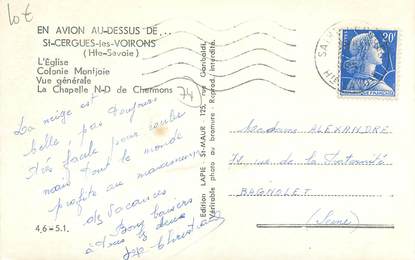 10€
EN AVION AU-DESSUS DE...
St-CERGUES-les-VOIRONS
(Hte-Savoie)
L'Eglise
Colonie Montjoie
Vue générale
La Chapelle N-D de Chermons
74
La neige est
belle, pas toujours
très facile pour
mais tout le monde
profite au maximum
des vacances
Bons baisers
à tous les deux
Christiane
46-5.1.
Edition LAPIE St-MAUR 125, rue Garibaldi.
Véritable photo au bromure - Reprod. interdite.
20F
Madame ALEXANDRE
rue de la Fraternité
BAGNOLET
(Seine)